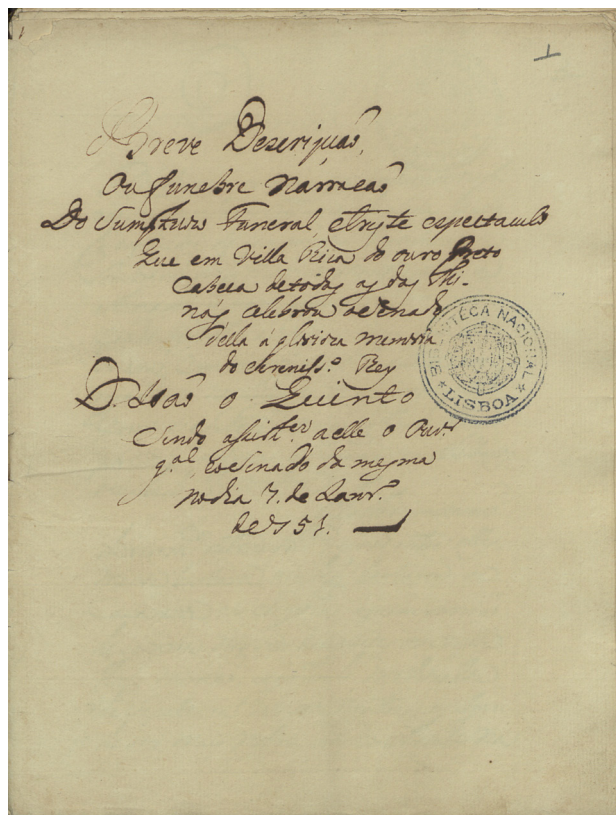 1
Breve Descripçaõ,
Ou funebre Narraçaõ
Do Sumptuozo Funeral, e triste espectaculo
Que em Villa Rica do ouro Preto
Cabeca de todas as das Mi-
nas celebrou o Senado
della á glorioza memoria
do Sereniss.º Rey
D. Joaõ o Quinto
Sendo assist.tes a elle o Ouv.or
g.al, e o Senado da mesma
no dia 7. de Janr.º
de 751.
BIBLIOTECA NACIONAL
LISBOA